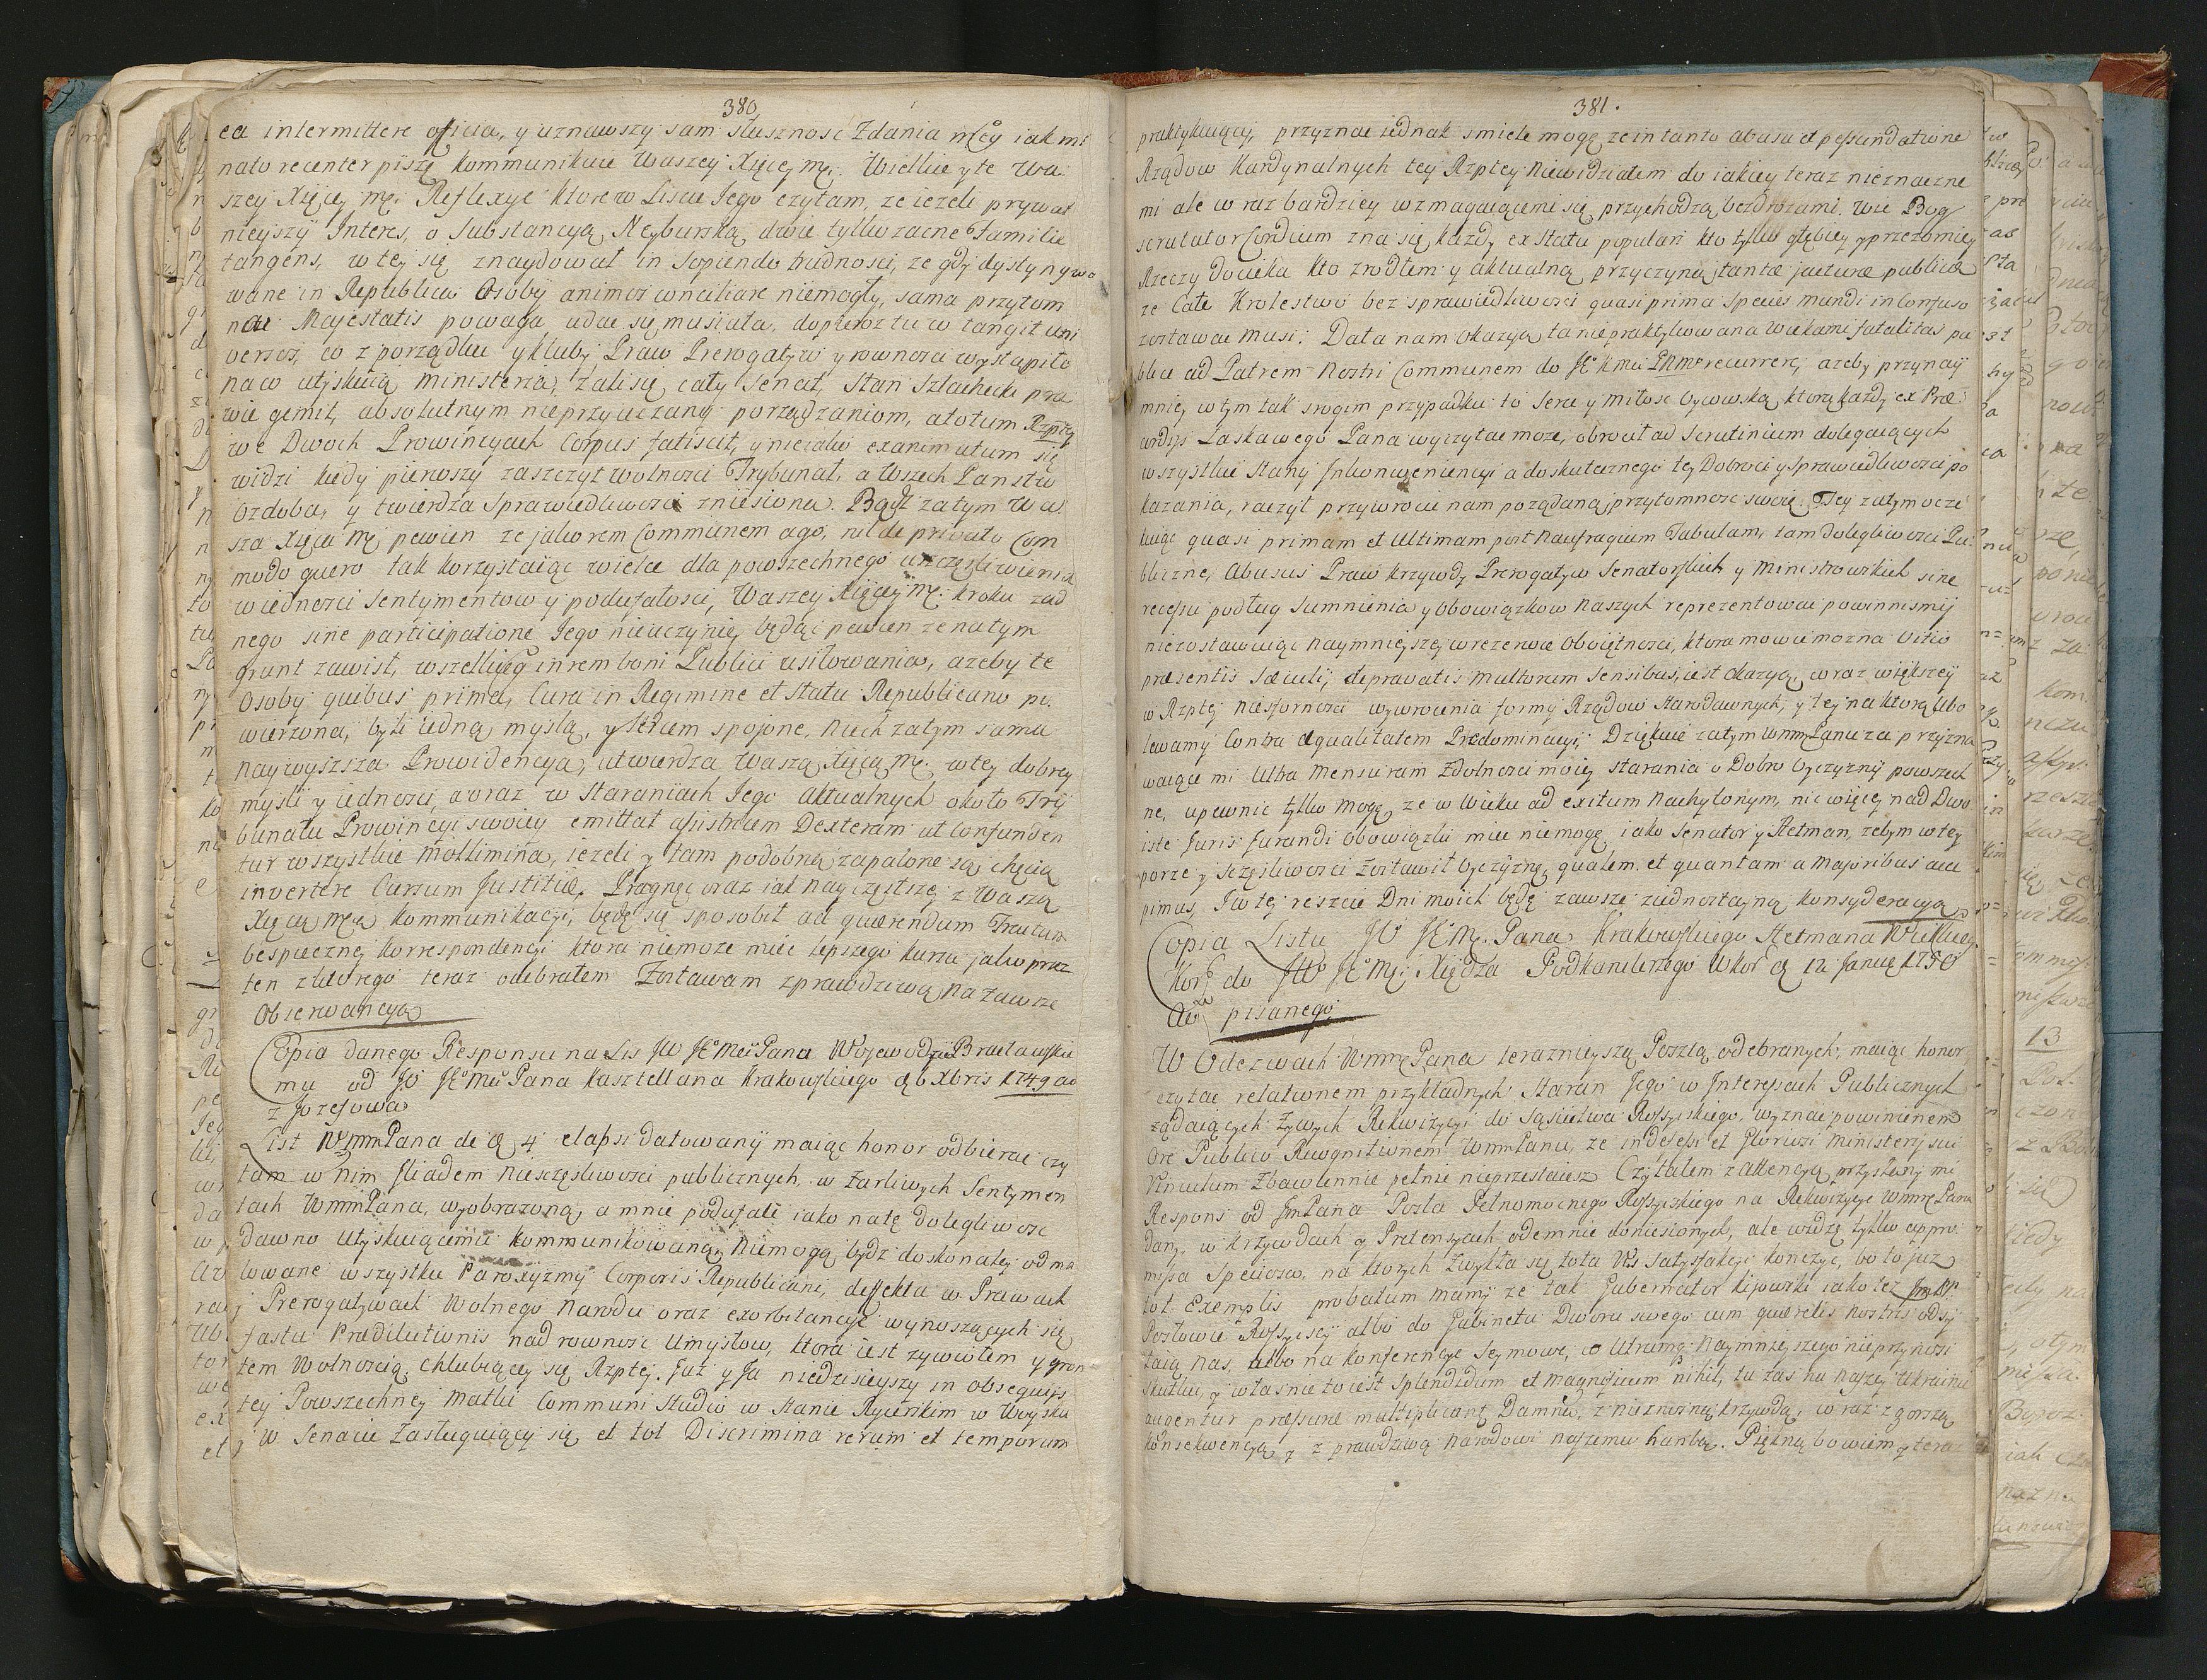 380
ea intermittere officia, y uznawszy sam słusznosc Zdania mego iak mi
nato recenter piszę kommunikuie Waszey Xięcey Mci. Wielkie y te Wa-
szey Xięcey Mci Reflexye ktore w Liscie Jego czytam, ze iezeli prywat
nieyszy Interes, o Substancyą Neyburską dwie tylko zacne Familie
tangens, w tey się znaydował in sopiendo trudnosci, ze gdy dystyngwo
wane in Republica Osoby animos conciliare niemogły, sama przytom
na Majestatis powaga udac się musiała, dopieroz tu co tangit uni
versos, co z porządku y kluby Praw Prerogatyw y rownosci wystąpiło
naco utyskuią ministeria, zali się cały Senat, Stan Szlachecki pra
wie gemit, absolutnym nieprzyuczany porządzaniom, a totum Rzptey
we Dwoch Prowincyach Corpus fatiscit, y nieiako exanimatum się
widzi kiedy pierwszy zaszczyt wolnosci Trybunał, a Wszech Panstw
Ozdoba, y twierdza Sprawiedliwosci zniesiona. Bądz zatym Wa
sza Xięca Mć pewien ze jako rem Communem ago, nil de privato Com
modo quero tak korzystaiąc wielce dla powszechnego uszczęsliwienia
wiednosci Sentymentow y podufałosci, Waszey Xięcey Mci kroku zad
nego sine participatione Jego nieuczynię, będąc pewien ze natym
grunt zawisł, wszelkiego in rem boni Publici usiłowania, azeby te
Osoby quibus prima, Cura in Regimine et Statu Republicano po
wierzona, byli iedną myslą, y sercem spojone, niech zatym sama
naywyszsza Prowidencya, utwierdza Waszą Xięcą Mć w tey dobrey
mysli y iednosci, a oraz w Staraniach Jego aktualnych około Try
bunału Prowincyi swoiey emittat assistricem Dexteram ut confunden
tur wszystkie mollimina, iezeli y tam podobną zapalone są chęcią
invertere Cursum Justitiæ. Pragnę oraz iak nayczęstszey z Waszą
Xięcą Mcią kommunikacyi, będę się sposobił ad quærendum Tractum
bespieczney korrespondencyi ktora niemoze miec lepszego kursu jako przez
ten z ktorego teraz odebrałem Zostawam z prawdziwą na zawsze
Obserwancyą
Copia danego Responsu na Lis JW JE Mci Pana Wojewody Bracławskie
mu od JW JE Mci Pana Kasztellana Krakowskiego d 6 Xbris 1749 ao
z Jozefowa
List WmmPana de d 4 elapsi datowany maiąc honor odbierac czy
tam w nim Iliadem nieszczęsliwosci publicznych, w zarliwych Sentymen
tach WmmPana, wyobrazoną, a mnie podufale iako natę dolegliwosc
dawno utyskuiącemu kommunikowaną, niemogą bydz doskonaley odma
lowane wszystkie Paroxyzmy Corporis Republicani, deffekta w Prawach
j Prerogatywach Wolnego Narodu oraz exorbitancye wynoszących się
fastu Prædilutionis nad rownosc Umysłow, ktora iest zywiołem y gron
tem Wolnoscią, chlubiącey się Rzptey. Juz y Ja niedzisieyszy in obsequijs
tey Powszechney Matki Communi Studio w Stanie Rycerskim w Woysku
w Senacie zasługuiący się et tot Discrimina rerum et temporum
381.
praktykuiący, przyznac iednak smiele mogę ze in tanto abusu et pessundatione
Rządow Kardynalnych tey Rzptey niewidziałem do iakiey teraz nieznaczne
mi ale w raz bardziey wzmagaiącemi się przychodzą bezdrozami. Wie Bog
scrutator Cordium zna się kazdy ex Statu populari kto tylko głębiey y przezorniey
Rzeczy docieka kto zrodłem y aktualną przyczyną tantæ jacturæ publicæ
ze Całe Krolestwo bez sprawiedliwosci quasi prima species mundi in Confuso
zostawac musi: Data nam Okazya ta niepraktykowana Wiekami fatalitas pu
blica ad Patrem Nostri Communem do JE Kmci PNMo recurrere, azeby przynay
mniey w tym tak srogim przypadku to Serce y miłosc Oycowską ktorą kazdy ex Præ
cordijs Łaskawego Pana wyczytac moze, obrocił ad Scrutinium dolegaiących
wszystkie Stany Inkonweniencyi a doskutecznego tey Dobroci y Sprawiedliwosci po
kazania, raczył przywrocic nam poządaną przytomnosc swoie. Tey zatym ocze
kuiąc quasi primam et Ultimam post Naufragium Tabulam, tam dolegliwosci Pu-
bliczne, Abusus Praw krzywdy Prerogatyw Senatorskich y Ministrowskich sine
recessu podług Sumnienia y Obowiązkow Naszych reprezentowac powinnismy
niezostawuiąc naymnieyszey w rezerwie Oboiętnosci, ktora mowic mozna Vitio
præsentis Sæculi, depravatis multorum Sensibus, iest okazyą coraz większey
w Rzptey niesfornosci wywrocenia formy Rządow Starodawnych, y tey na ktorą ubo
lewamy Contra æqualitatem Predominacyi; Dziękuie zatym WmmPanu za przyzna
waiące mi Ultra Mensuram Zdolnosci moiey starania o Dobro Oyczyzny powszech
ne, upewnic tylko mogę ze w Wieku ad exitum nachylonym, nic więcey nad Dwo
iste Juris Jurandi Obowiązki miec niemogę iako Senator y Hetman, zebym w tey
porze y Szczęsliwosci zostawił Oyczyznę, qualem et quantam a Majoribus acce
pimus, I w tey reszcie Dni moich będę zawsze ziednostayną konsyderacyą
Copia Listu JW JE M. Pana Krakowskiego Hetmana Wielkiego
Kor. do JW JE Mci Xiędza Podkanclerzego Wkor d 12 Januę 1750
Ao pisanego
W Odezwach WmmPana terazniejszą Pocztą odebranych, maiąc honor
czytac relationem przykładnych Staran Jego w Interessach Publicznych
ządaiących zywych Rekwizycyi do Sąsiectwa Rossyiskiego, wyznac powinienem
Ore Publico Recognitionem WmmPanu, ze indefessi et gloriosi Ministerij sui
Vinculum Zbawiennie pełnic nieprzestaiesz Czytałem z attencyą przysłany mi
Respons od JmPana Posła Pełnomocnego Rossyiskiego na Rekwizycye WmmPana
dany, w krzywdach y Pretensyach odemnie doniesionych, ale widzę tylko appro
missa Speciosa, na ktorych zwykła się tota Vis Satysfakcyi konczyc, bo to juz
tot Exemplis probatum mamy ze tak Gubernator kijowski iako tez JmPP.
Posłowie Rossyiscy albo do Gabinetu Dworu swego cum querelis nostris odsy
łaią nas, albo na konferencye Seymowe, co Utrumq Naymnieyszego nieprzynosi
skutku, y własnie to iest Splendidum et magnificum nihil, tu zas na naszey Ukrainie
augentur pressuræ multiplicant Damna, z nieznosną krzywdą, coraz z gorszą
konsekwencyą y z prawdziwą Narodowi naszemu hanbą. Piękną bowiem y tera